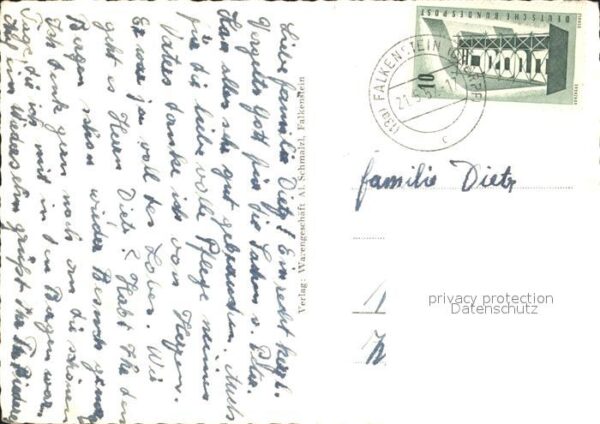 Liebe Familie Dietz! Ein recht herzl.
Vergelts Gott für die Sachen v. Blu.
Kann alles sehr gut gebrauchen. Auch
für die liebevolle Pflege meines
Vaters danke ich von Herzen.
Er war ja voll des Lobes. Wie
geht es Herrn Dietz? Habt Ihr den
Bayern schon wieder Besuch
Ich denke gern noch an die schönen
Tage, die ich mit in den Bergen war.
Auf ein Wiedersehn grüßt Ihr
Verlag: Warengeschäft Al. Schmalzl, Falkenstein
DEUTSCHE BUNDESPOST
EUROPA
10
(13a) FALKENSTEIN
familie Dietz
privacy protection
Datenschutz